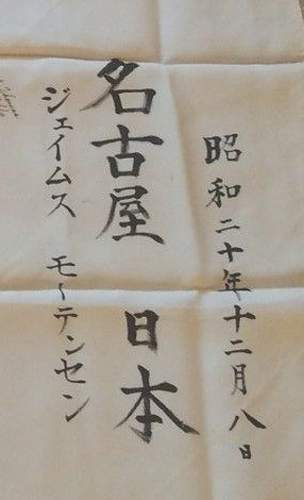 昭和二十年十二月八日
名古屋 日本
ジェイムス モーテンセン